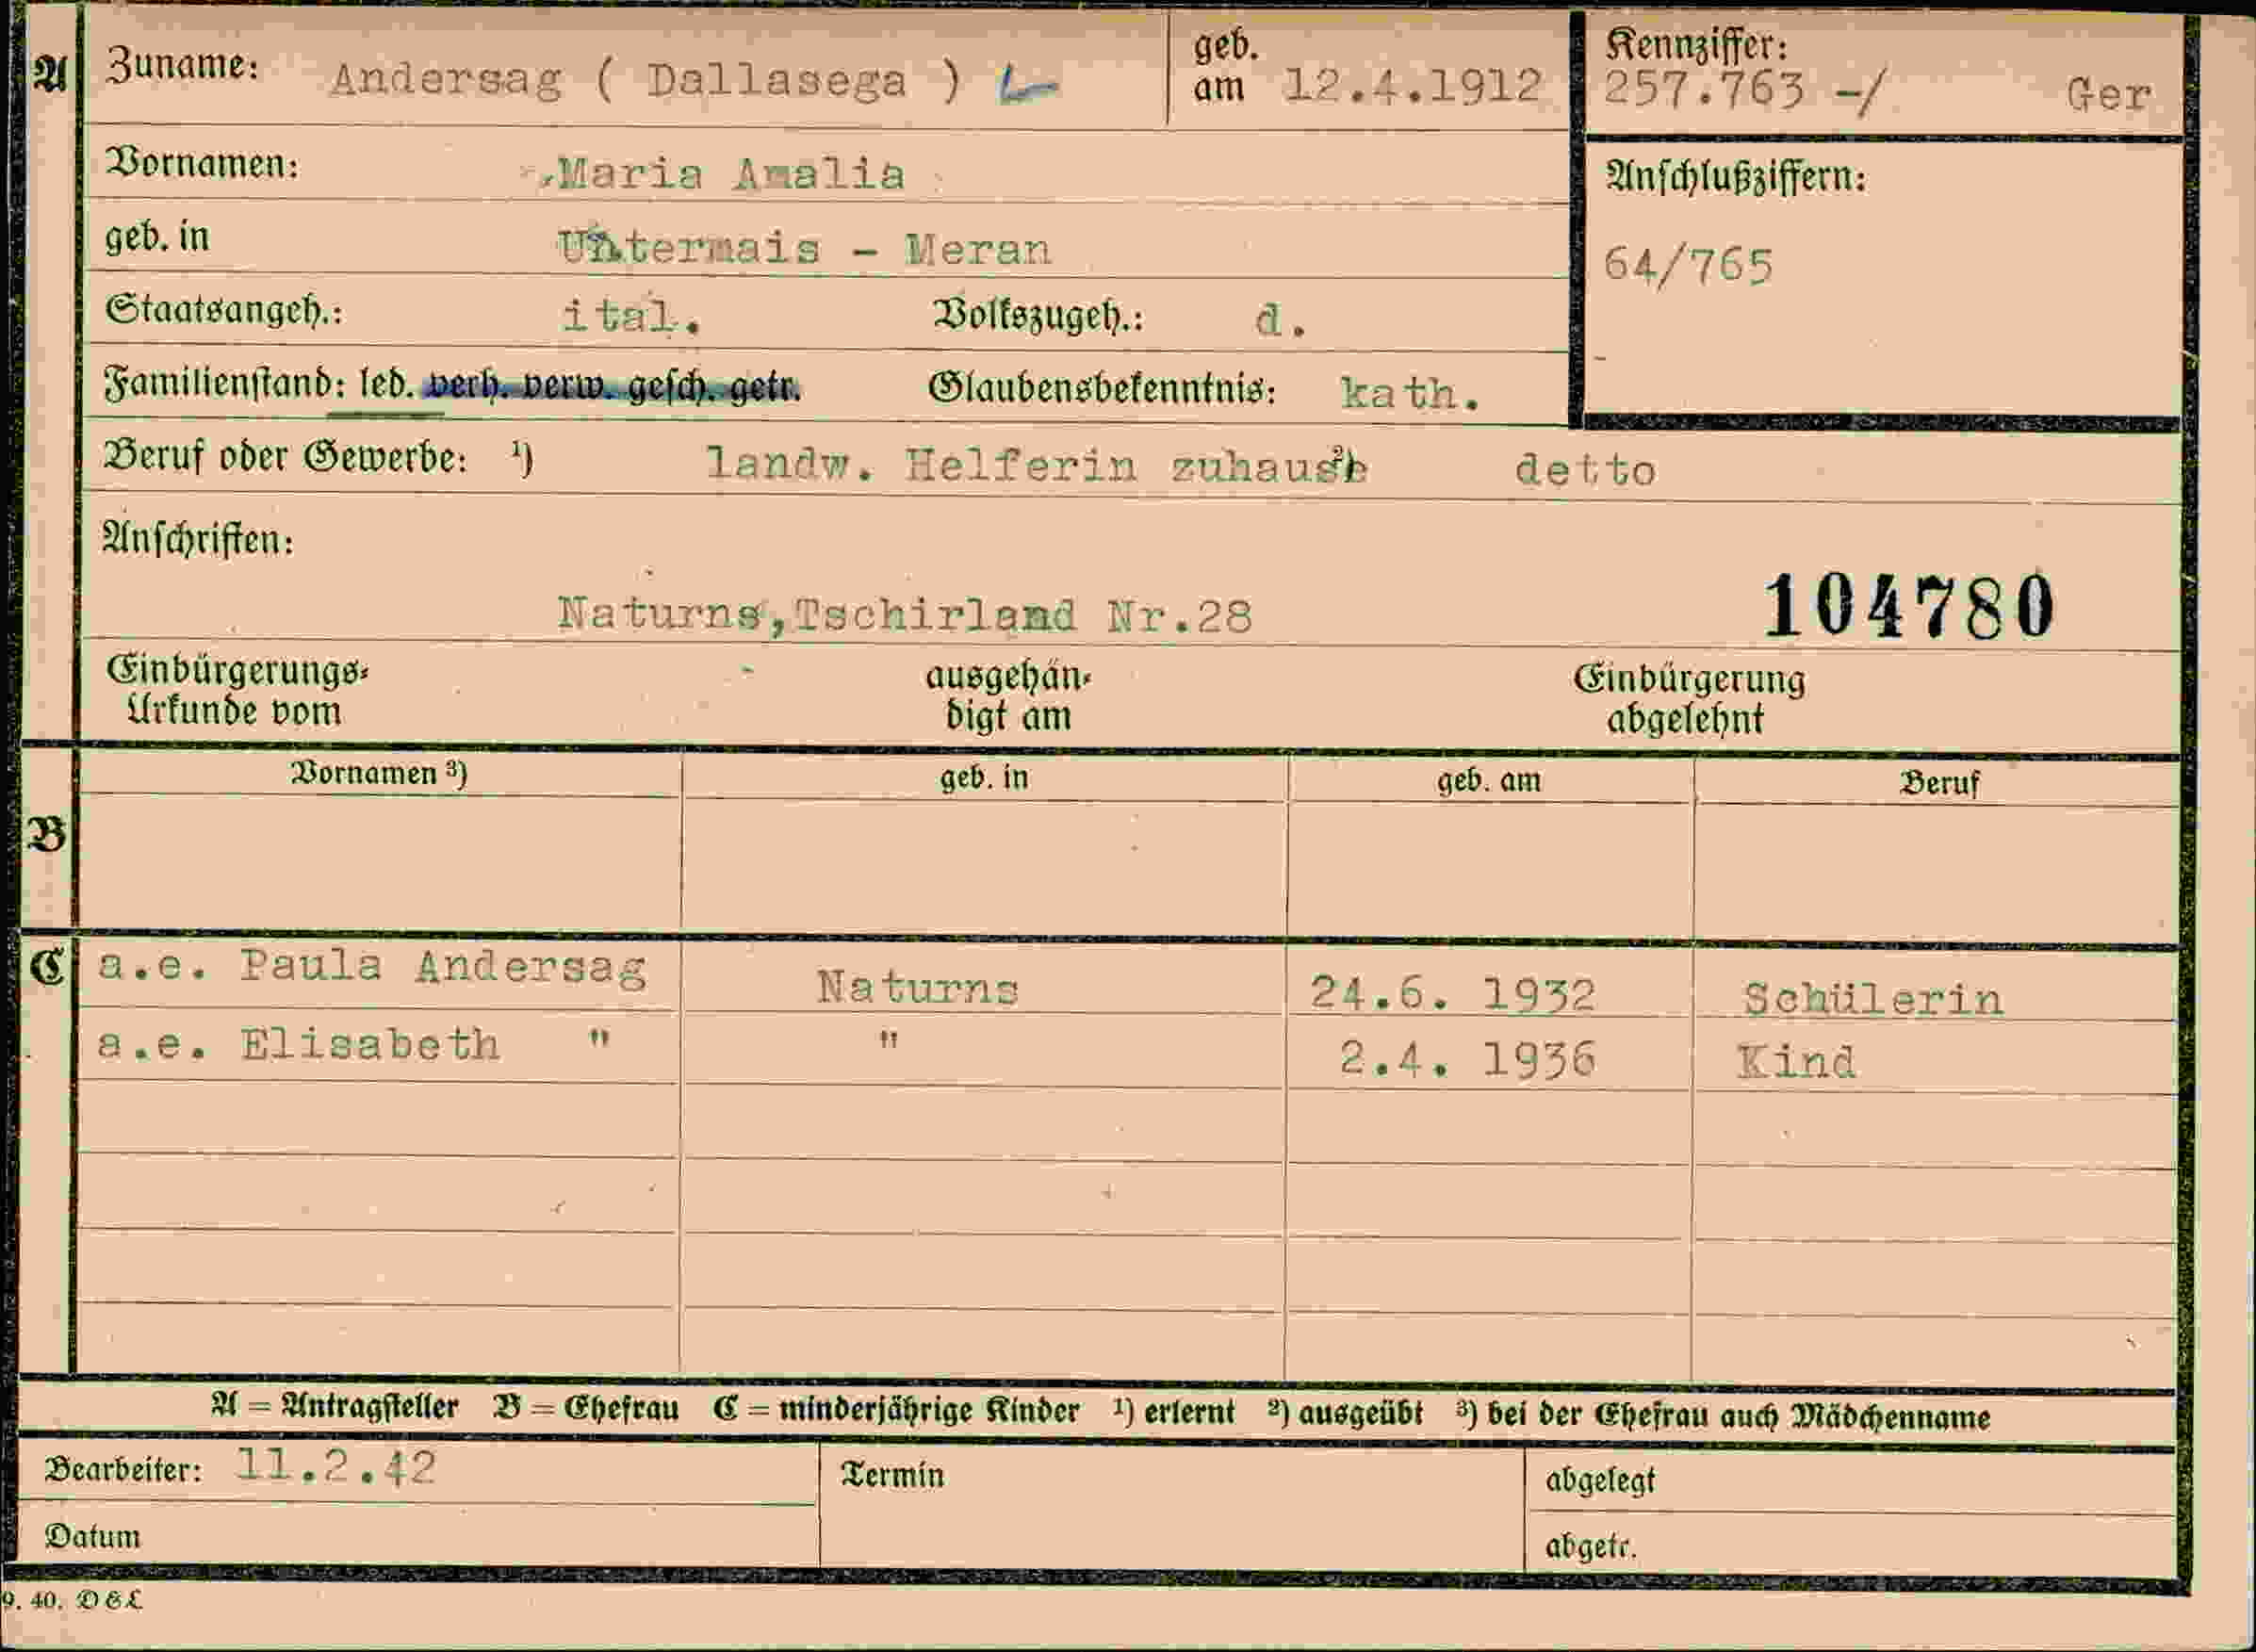 A Zuname: Andersag ( Dallasega ) geb. am 12.4.1912 Kennziffer: 257.763 -/ Ger
Vornamen: Maria Amalia Anschlußziffern:
geb. in Untermais - Meran 64/765
Staatsangeh.: ital. Volkszugeh.: d.
Familienstand: led. verh. verw. gesch. getr. Glaubensbekenntnis: kath.
Beruf oder Gewerbe: ¹) landw. Helferin zuhause ²) detto
Anschriften:
Naturns,Tschirland Nr.28 104780
Einbürgerungs- ausgehän- Einbürgerung
Urkunde vom digt am abgelehnt
Vornamen ³) geb. in geb. am Beruf
B
C a.e. Paula Andersag Naturns 24.6. 1932 Schülerin
a.e. Elisabeth " " 2.4. 1936 Kind
A = Antragsteller B = Ehefrau C = minderjährige Kinder ¹) erlernt ²) ausgeübt ³) bei der Ehefrau auch Mädchenname
Bearbeiter: 11.2.42 Termin abgelegt
Datum abgetr.
9. 40. D & L